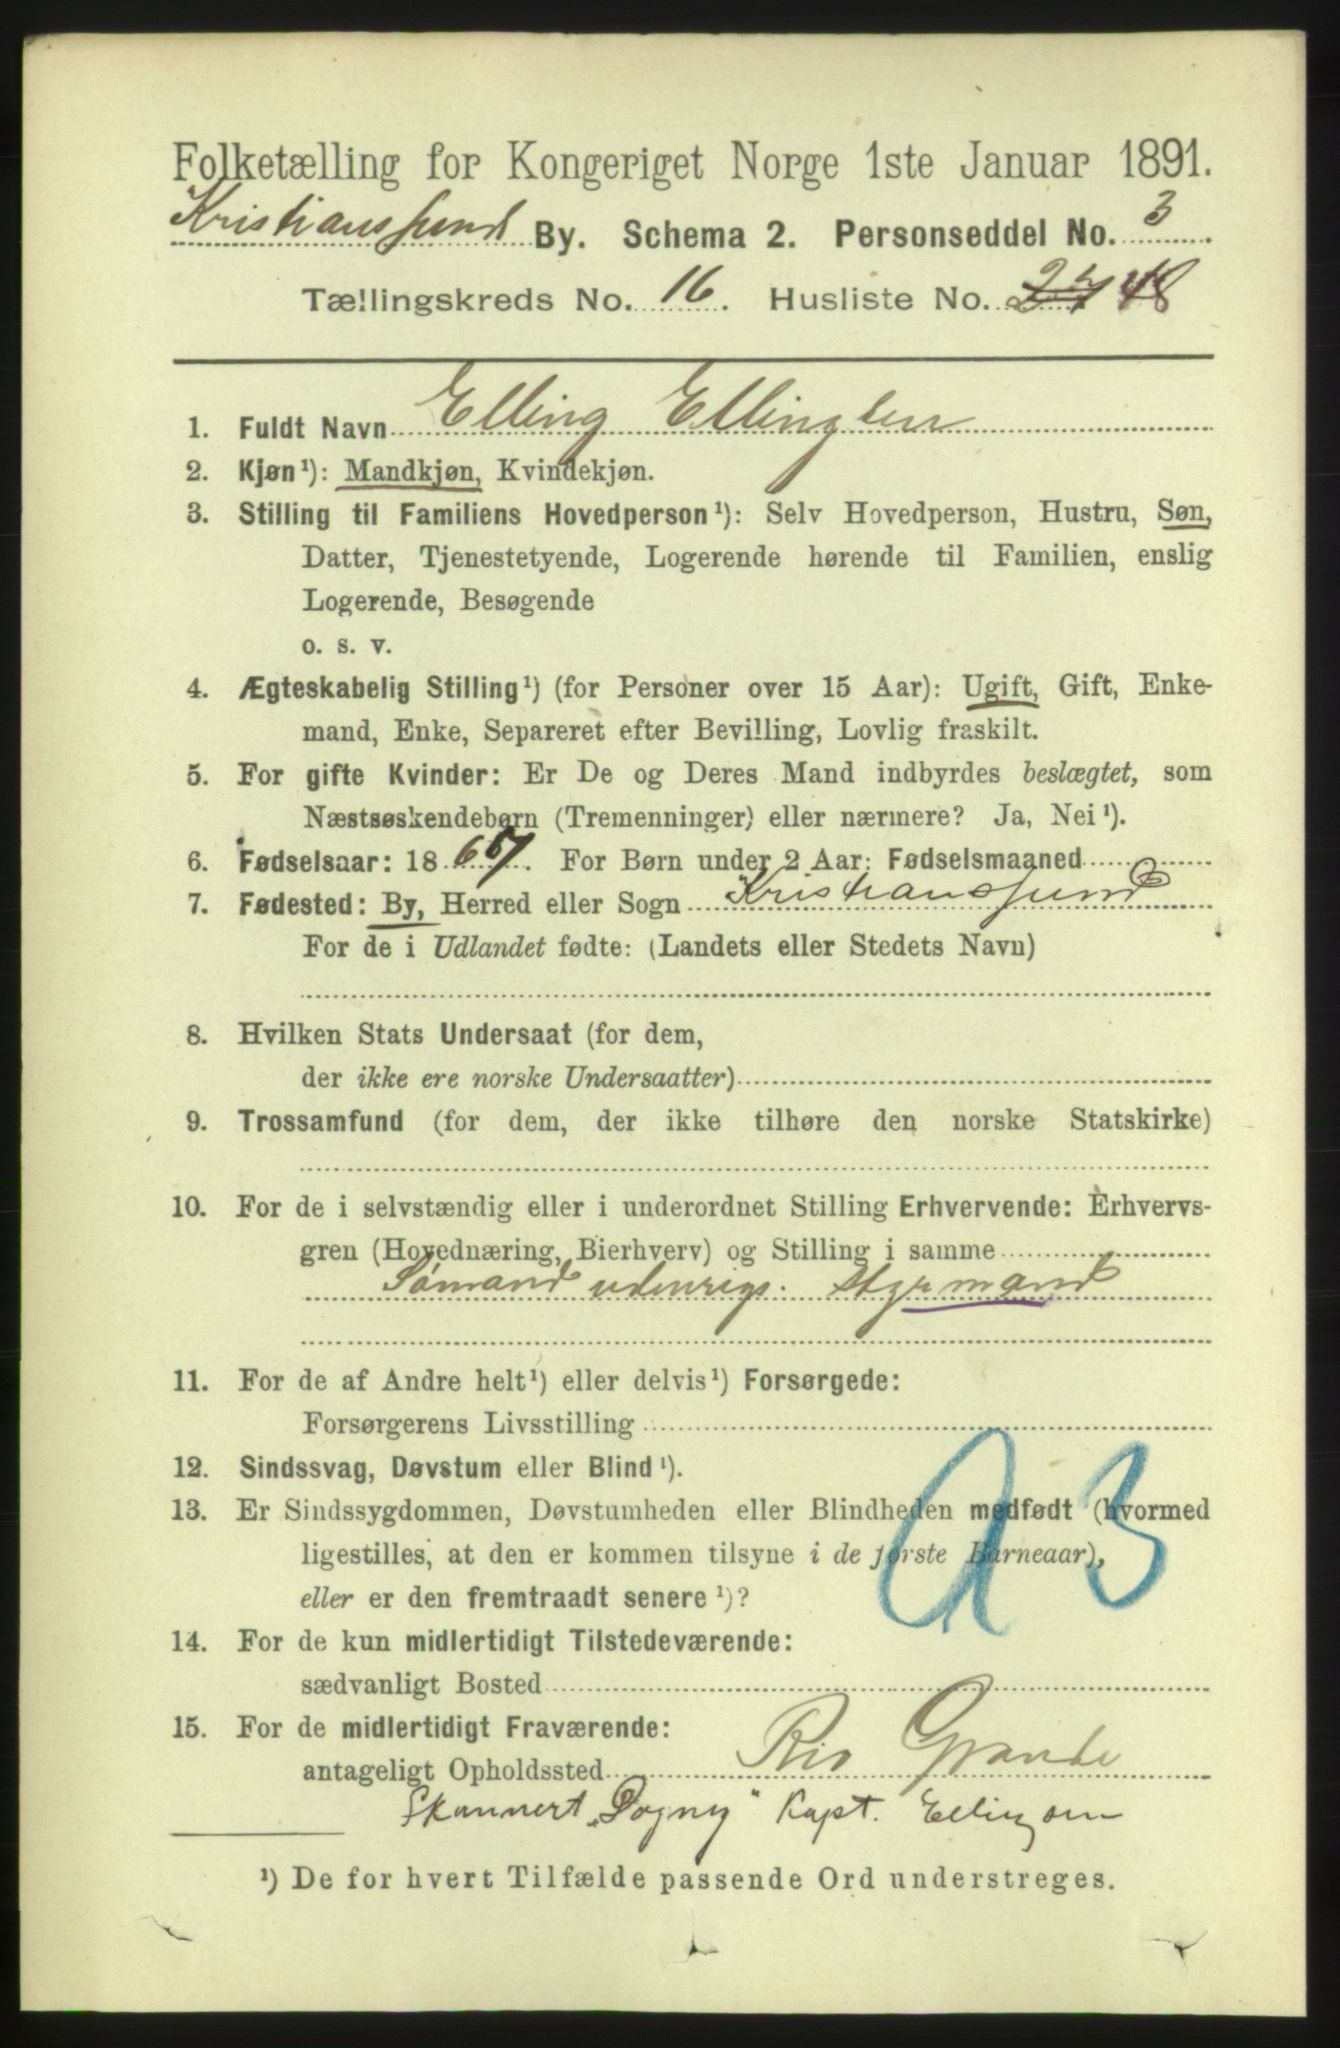 Folketælling for Kongeriget Norge 1ste Januar 1891.
Kristianssund By. Schema 2. Personseddel No. 3
Tællingskreds No. 16. Husliste No. 48
1. Fuldt Navn Elling Ellingsen
2. Kjøn¹): Mandkjøn, Kvindekjøn.
3. Stilling til Familiens Hovedperson¹): Selv Hovedperson, Hustru, Søn,
Datter, Tjenestetyende, Logerende hørende til Familien, enslig
Logerende, Besøgende
o. s. v.
4. Ægteskabelig Stilling¹) (for Personer over 15 Aar): Ugift, Gift, Enke-
mand, Enke, Separeret efter Bevilling, Lovlig fraskilt.
5. For gifte Kvinder: Er De og Deres Mand indbyrdes beslægtet, som
Næstsøskendebørn (Tremenninger) eller nærmere? Ja, Nei¹).
6. Fødselsaar: 18 . For Børn under 2 Aar: Fødselsmaaned
7. Fødested: By, Herred eller Sogn Kristianssund
For de i Udlandet fødte: (Landets eller Stedets Navn)
8. Hvilken Stats Undersaat (for dem,
der ikke ere norske Undersaatter)
9. Trossamfund (for dem, der ikke tilhøre den norske Statskirke)
10. For de i selvstændig eller i underordnet Stilling Erhvervende: Erhvervs-
gren (Hovednæring, Bierhverv) og Stilling i samme
Sømand udenrigs. Styrmand
11. For de af Andre helt¹) eller delvis¹) Forsørgede:
Forsørgerens Livsstilling
12. Sindssvag, Døvstum eller Blind¹).
13. Er Sindssygdommen, Døvstumheden eller Blindheden medfødt (hvormed
ligestilles, at den er kommen tilsyne i de første Barneaar),
eller er den fremtraadt senere¹)?
a 3
14. For de kun midlertidigt Tilstedeværende:
sædvanligt Bosted
15. For de midlertidigt Fraværende:
antageligt Opholdssted Rio Grande
Skonnert „Dagny" Kapt. Ellingsen
¹) De for hvert Tilfælde passende Ord understreges.